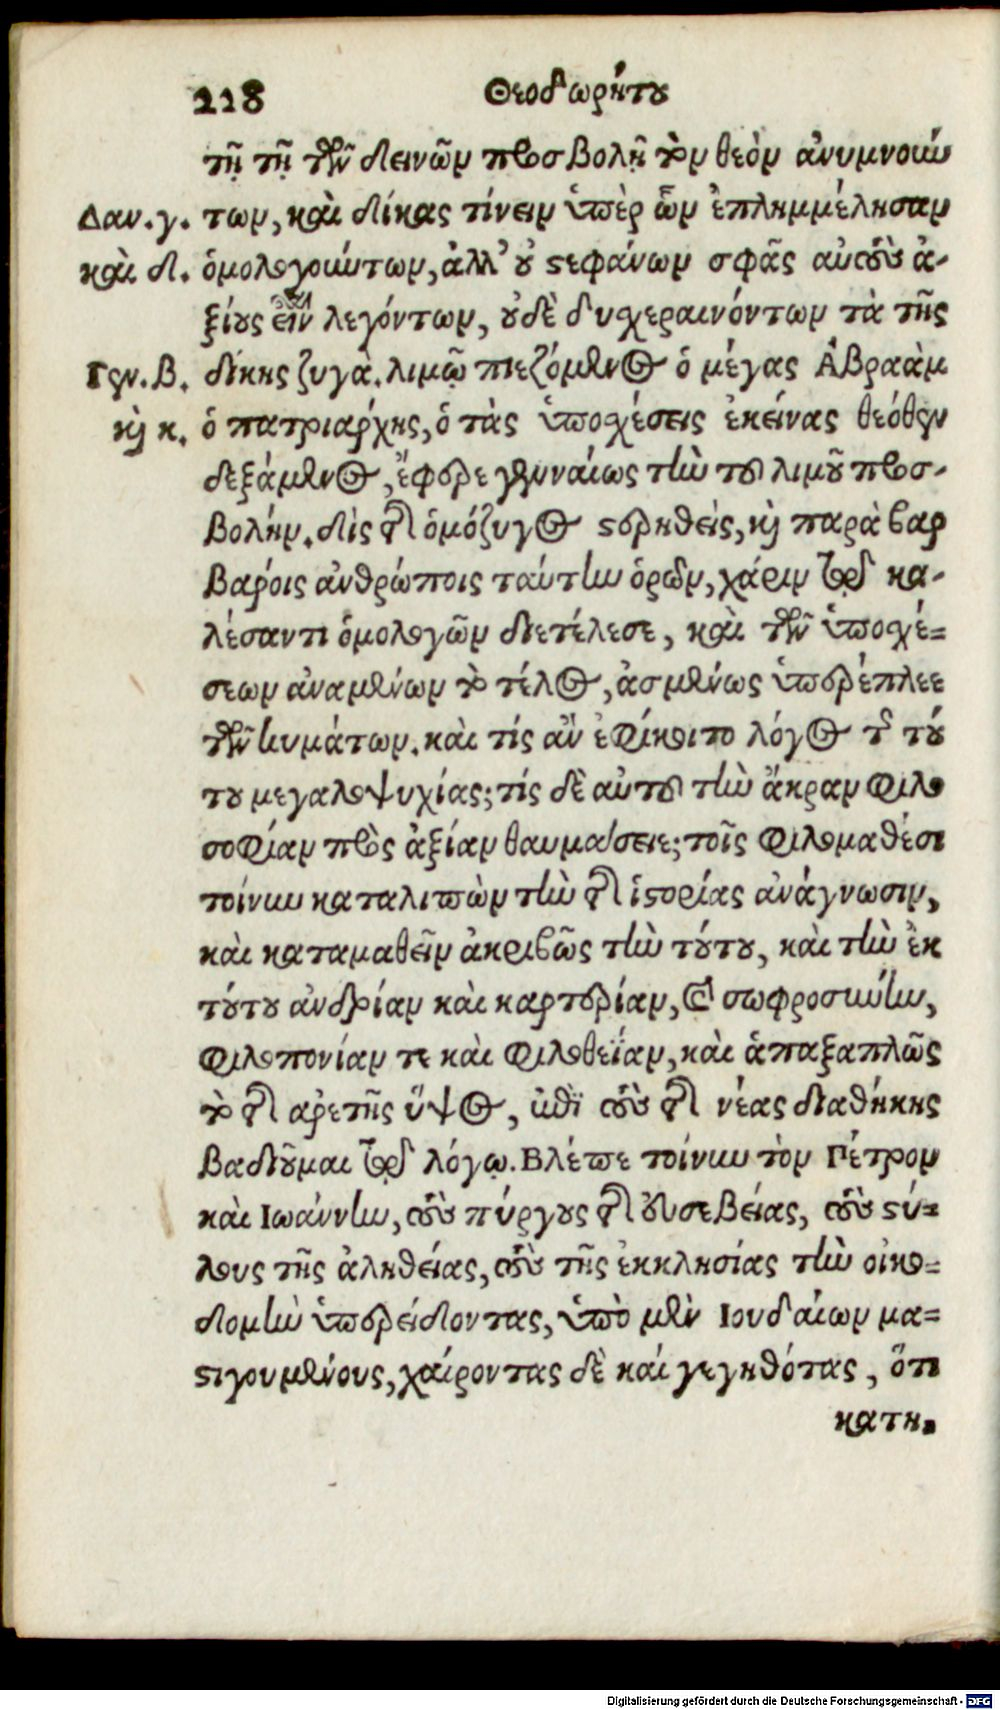 218 Θεοδωρήτου
τῇ τῇ τῶν δεινῶν προσβολῇ τὸν θεὸν ἀνυμνούν
Δαν. γ. των, καὶ δίκας τίνειν ὑπὲρ ὧν ἐπλημμέλησαν
καὶ δ. ὁμολογούντων, ἀλλ' οὐ στεφάνων σφᾶς αὐτοὺς ἀ-
ξίους εἶναι λεγόντων, οὐδὲ δυσχεραινόντων τὰ τῆς
Γεν. β. δίκης ζυγά. λιμῷ πιεζόμενος ὁ μέγας Ἀβραὰμ
καὶ κ. ὁ πατριάρχης, ὁ τὰς ὑποσχέσεις ἐκείνας θεόθεν
δεξάμενος, ἔφερε γενναίως τὴν τοῦ λιμοῦ προσ-
βολήν. δὶς τῆς ὁμόζυγος στερηθεὶς, καὶ παρὰ βαρ
βάροις ἀνθρώποις ταύτην ὁρῶν, χάριν τῷ κα-
λέσαντι ὁμολογῶν διετέλεσε, καὶ τῶν ὑποσχέ-
σεων ἀναμένων τὸ τέλος, ἀσμένως ὑπερέπλεε
τῶν κυμάτων. καὶ τίς ἂν ἐφίκοιτο λόγος τῆς τού
του μεγαλοψυχίας; τίς δὲ αὐτοῦ τὴν ἄκραν φιλο
σοφίαν πρὸς ἀξίαν θαυμάσειε; τοῖς φιλομαθέσι
τοίνυν καταλιπὼν τὴν τῆς ἱστορίας ἀνάγνωσιν,
καὶ καταμαθεῖν ἀκριβῶς τὴν τούτου, καὶ τὴν ἐκ
τούτου ἀνδρίαν καὶ καρτερίαν, καὶ σωφροσύνην,
φιλοπονίαν τε καὶ φιλοθεΐαν, καὶ ἁπαξαπλῶς
τὸ τῆς ἀρετῆς ὕψος, ἐπὶ τοὺς τῆς νέας διαθήκης
βαδιοῦμαι τῷ λόγῳ. Βλέπε τοίνυν τὸν Πέτρον
καὶ Ιωάννην, τοὺς πύργους τῆς εὐσεβείας, τοὺς στύ-
λους τῆς ἀληθείας, τοὺς τῆς ἐκκλησίας τὴν οἰκο-
δομὴν ὑπερείδοντας, ὑπὸ μὲν Ιουδαίων μα-
στιγουμένους, χαίροντας δὲ καί γεγηθότας, ὅτι
κατη.
Digitalisierung gefördert durch die Deutsche Forschungsgemeinschaft - DFG